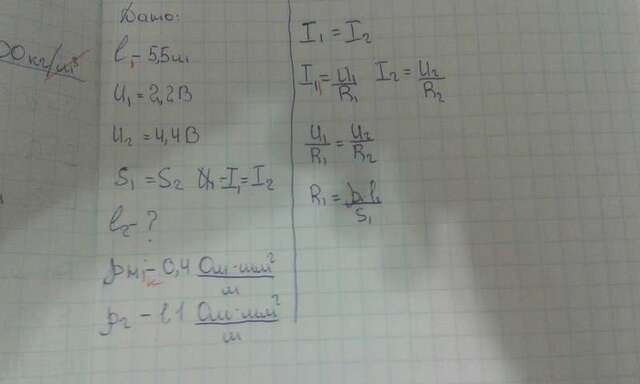 00кг/м³
Дано:
l₁ - 5,5м
U₁ = 2,2В
U₂ = 4,4В
S₁ = S₂ I₁ = I₂
l₂ - ?
ρн₁ - 0,4 Ом·мм²/м
ρ₂ - 1,1 Ом·мм²/м
I₁ = I₂
I₁ = U₁/R₁ I₂ = U₂/R₂
U₁/R₁ = U₂/R₂
R₁ = ρ₁l₁/S₁